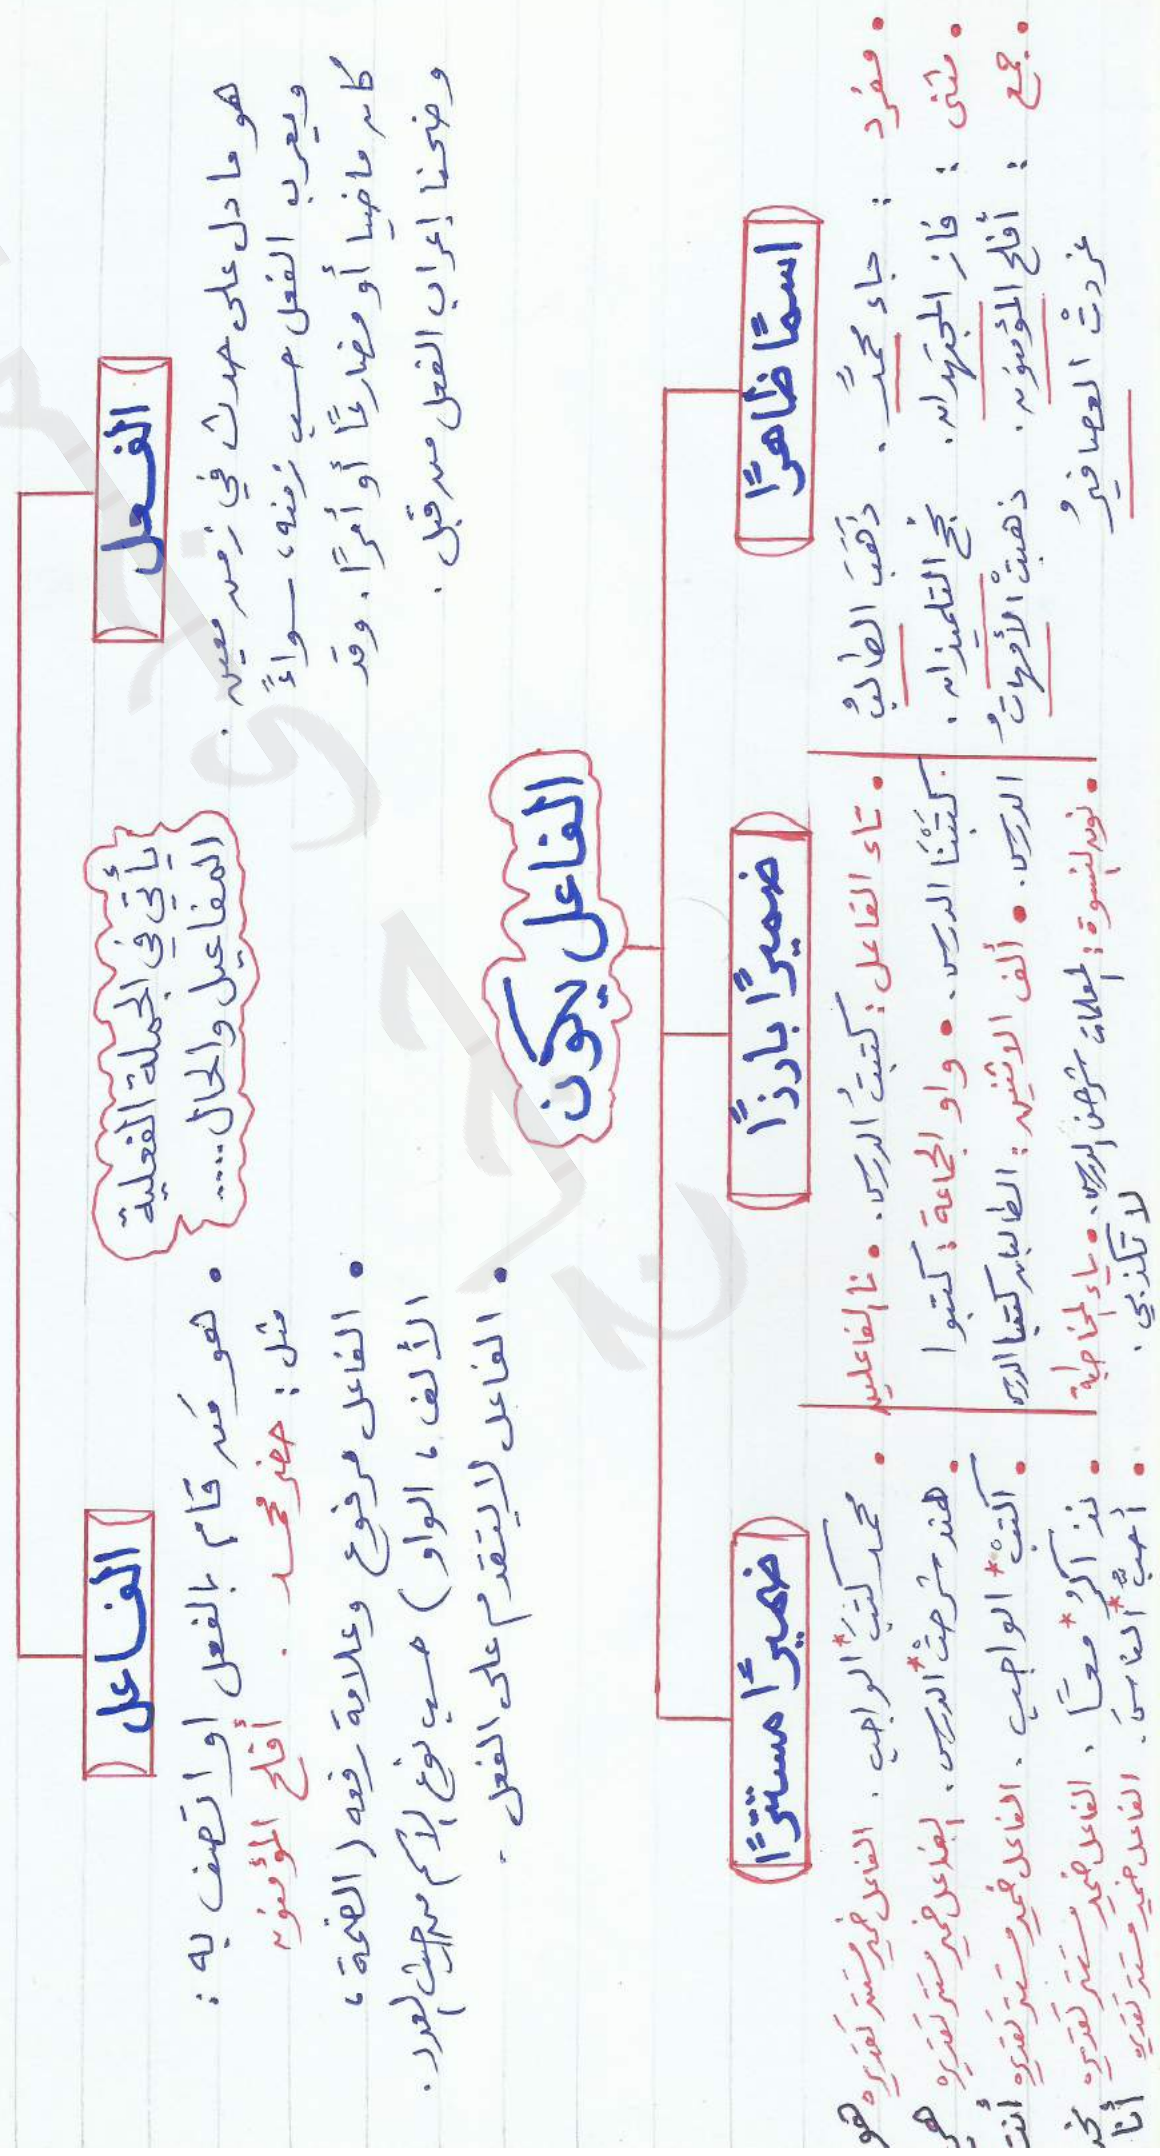 الفعل
هو ما دل على حدث في زمن معين .
ويعرب الفعل حسب زمنه، سواءً
كان ماضيا أو مضارعًا أو أمرًا. وقد
وضحنا إعراب الفعل من قبل .
يأتي في الجملة الفعلية
المفاعيل والحال.....
الفاعل
• هو مَن قام بالفعل او اتصف به :
مثل : حضر محمد . أفلح المؤمنون
• الفاعل مرفوع وعلامة رفعه ( الضمة ،
الألف ، الواو ) حسب نوع الاسم من حيث العدد.
• الفاعل لا يتقدم على الفعل .
الفاعل يكون
اسمًا ظاهرًا
• مفرد : جاء محمدٌ . ذَهَبَ الطالبُ
• مثنى : فاز المجتهدان. نجح التلميذان .
• جمع : أفلح المؤمنون . ذهبتْ الأمهاتُ
غردتْ العصافيرُ
ضميرًا بارزًا
• تاء الفاعل : كتبتُ الدرس. • نا الفاعلين
كتبْنَا الدرس. • واو الجماعة : كتبوا
الدرس. • ألف الاثنين : الطالبان كتبا الدرس
• نون النسوة : المعلمات شرحن الدرس. • ياء المخاطبة
لا تكذبي .
ضميرًا مستترًا
• محمد كتبَ* الواجب . الفاعل ضمير مستتر تقديره هو
• هند شرحتْ* الدرس. الفاعل ضمير مستتر تقديره هي
• اكتبْ* الواجب . الفاعل ضمير مستتر تقديره أنت
• نذاكرُ* معًا . الفاعل ضمير مستتر تقديره نحن
• أحبُّ* الناسَ . الفاعل ضمير مستتر تقديره أنا